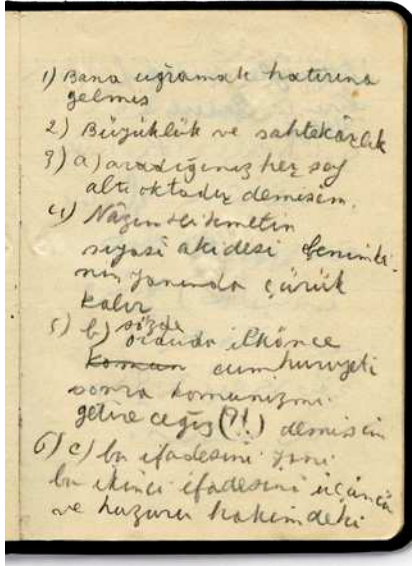 1) Bana uğramak hatırına
gelmiş
2) Büyüklük ve sahtekârlık
3) a) aradığınız her şey
altı oktadır demişim.
4) Nâzım Hikmetin
siyasî akidesi benimki-
nin yanında çürük
kalır
5) b) sözde
orada ilkönce
koman cumhuriyeti
sonra komunizmi
getireceğiz (?!) demişim
6) c) bu ifadesini yani
bu ikinci ifadesini üçüncü
ve huzuru hakimdeki